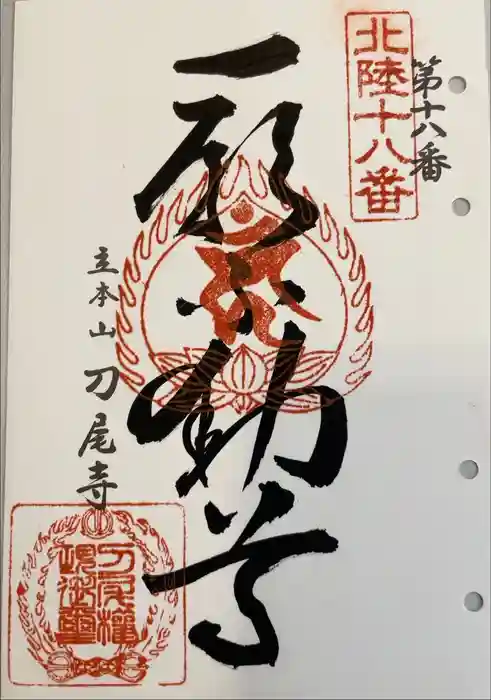 北陸十八番
第十八番
一願不動尊
立本山 刀尾寺
刀尾權
現御